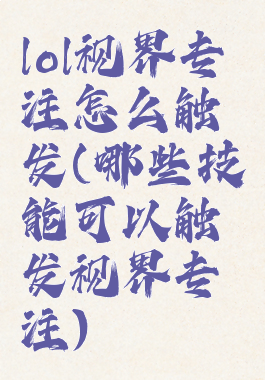 lol视界专
注怎么触
发(哪些技
能可以触
发视界专
注)